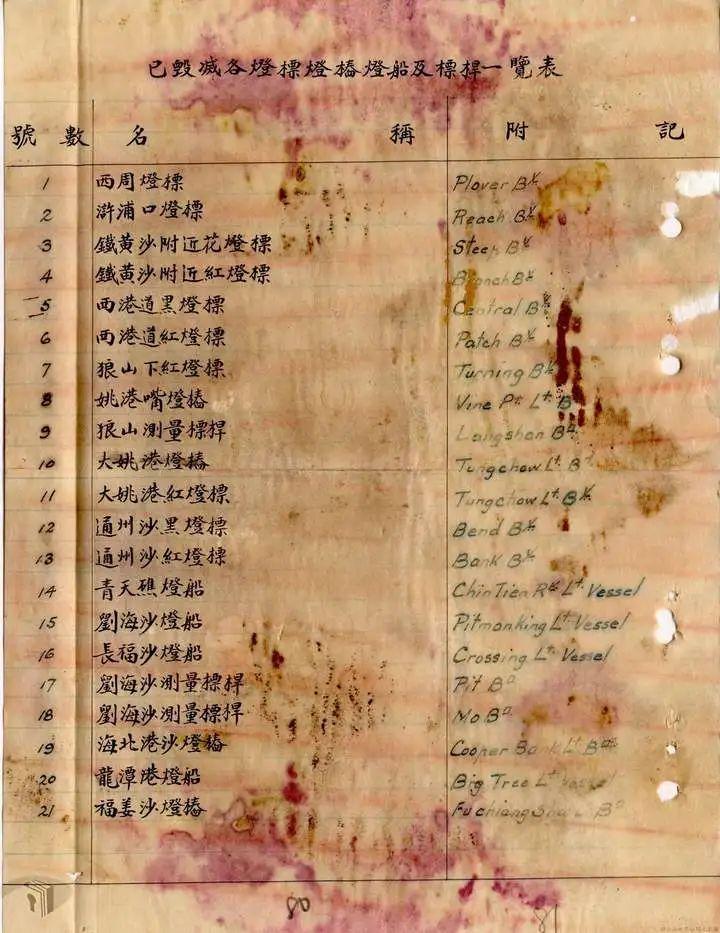 已毀滅各燈標燈樁燈船及標桿一覽表
號數 名稱 附記
1 西周燈標 Plover Bʸ
2 滸浦口燈標 Reach Bʸ
3 鐵黃沙附近花燈標 Steep Bʸ
4 鐵黃沙附近紅燈標 Branch Bʸ
5 西港道黑燈標 Central Bʸ
6 西港道紅燈標 Patch Bʸ
7 狼山下紅燈標 Turning Bʸ
8 姚港嘴燈樁 Vine Pᵗ Lᵗ B
9 狼山測量標桿 Langshan Bⁿ
10 大姚港燈樁 Tungchow Lᵗ Bⁿ
11 大姚港紅燈標 Tungchow Lᵗ Bʸ
12 通州沙黑燈標 Bend Bʸ
13 通州沙紅燈標 Bank Bʸ
14 青天礁燈船 Chin Tien Rᵏ Lᵗ Vessel
15 劉海沙燈船 Pitmanking Lᵗ Vessel
16 長福沙燈船 Crossing Lᵗ Vessel
17 劉海沙測量標桿 Pit Bⁿ
18 劉海沙測量標桿 Mo Bⁿ
19 海北港沙燈樁 Cooper Bank Lᵗ
20 龍潭港燈船 Big Tree Lᵗ Vessel
21 福姜沙燈樁 Fuchiang Bⁿ
80
81